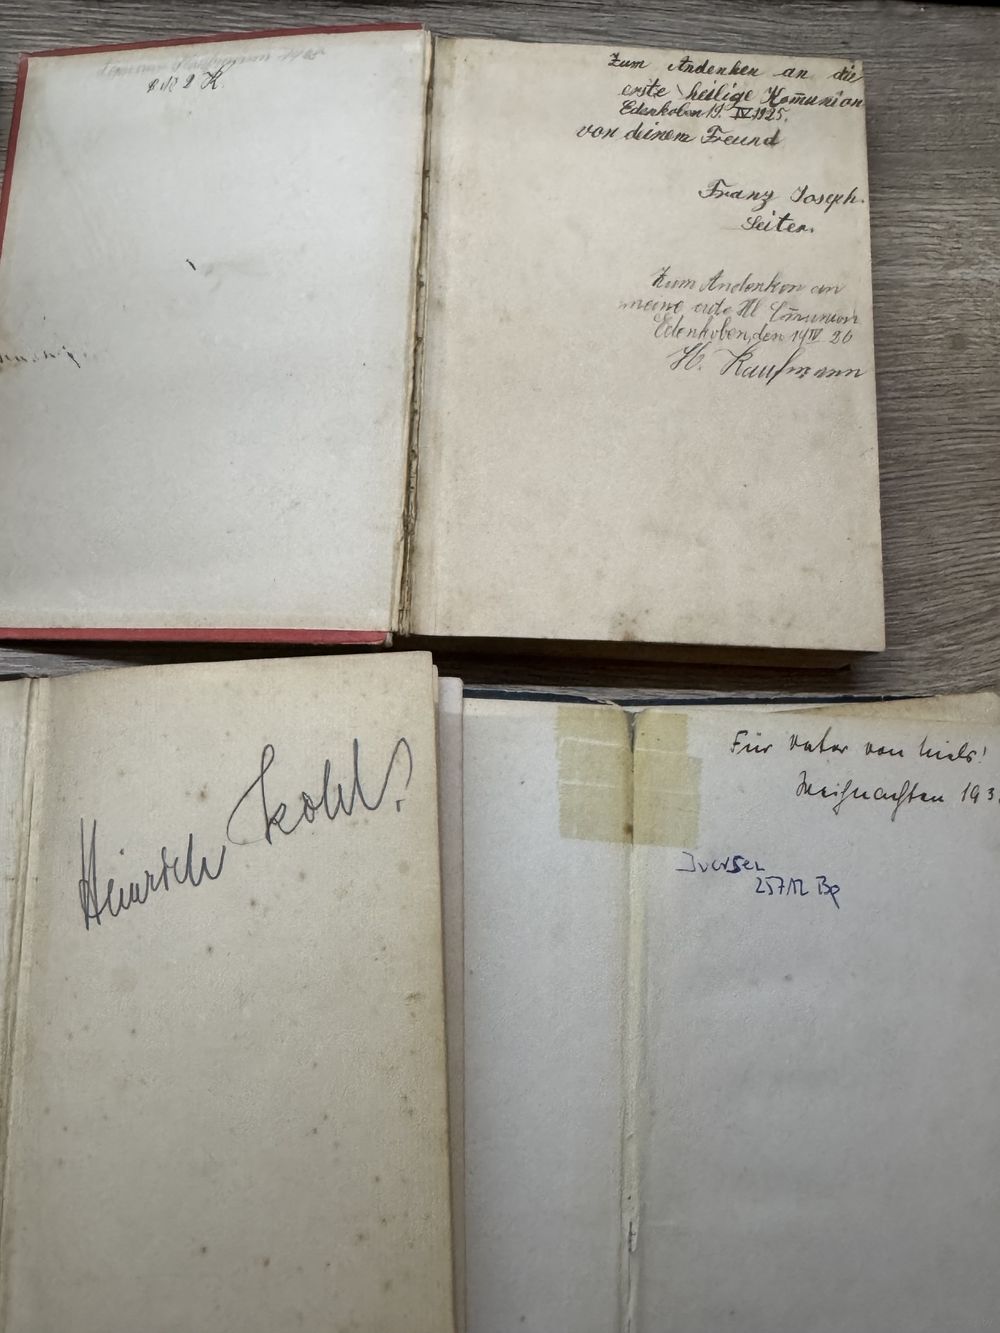 Zum Andenken an die
erste heilige Kom̅union
Edenkoben 19. IV. 1925.
von deinem Freund
Franz Joseph.
Seiter.
Zum Andenken an
meine erste Hl Com̅union
Edenkoben, den 19 IV 26
H. Kaufmann
Heinrich Kohl
Für Vater von Niels!
Weihnachten 193
Iversen